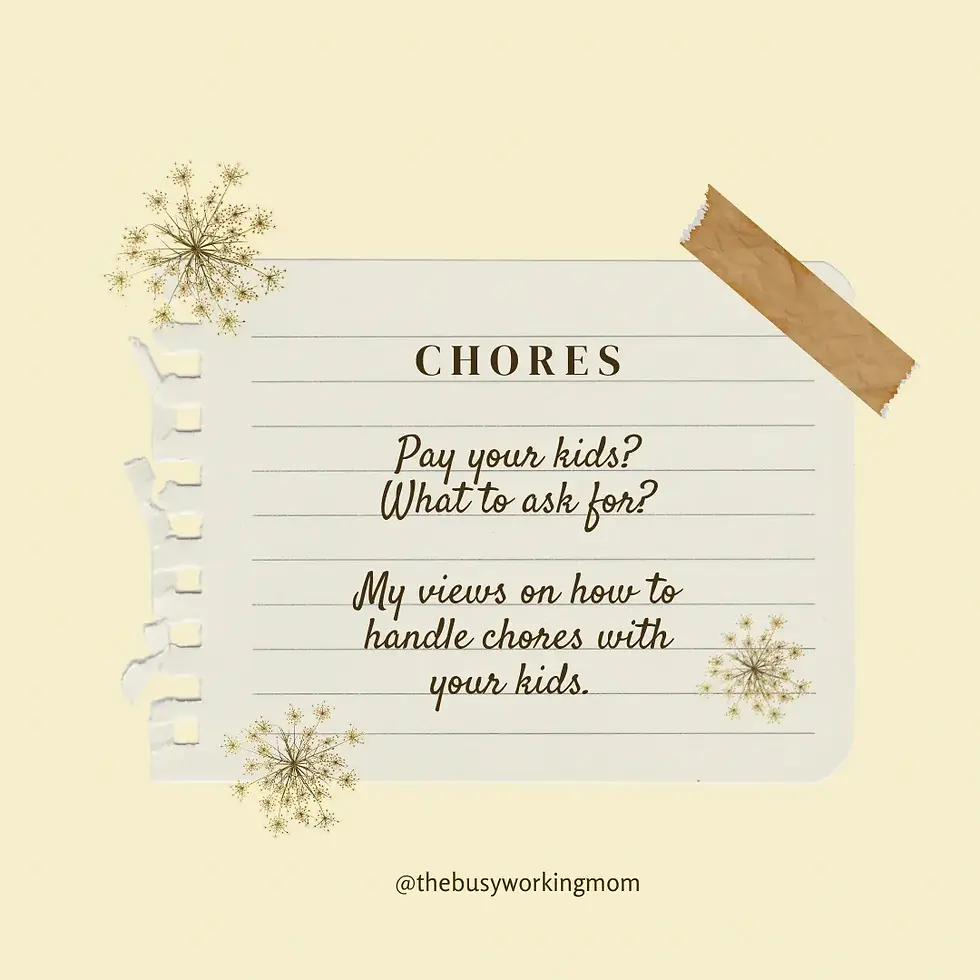 CHORES
Pay your kids?
What to ask for?
My views on how to
handle chores with
your kids.
@thebusyworkingmom